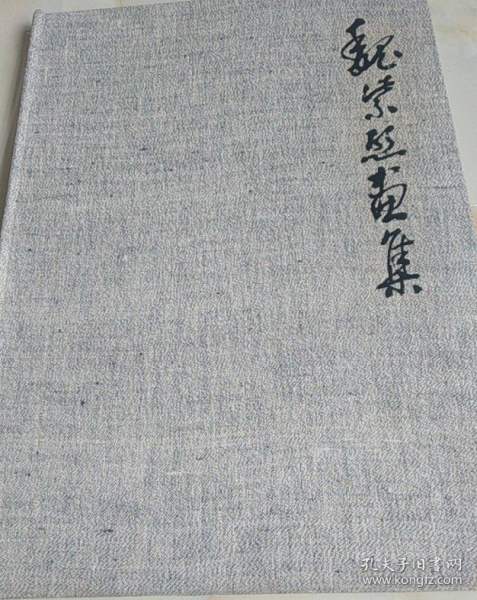 魏紫熙画集
孔夫子旧书网
www.kongfz.com